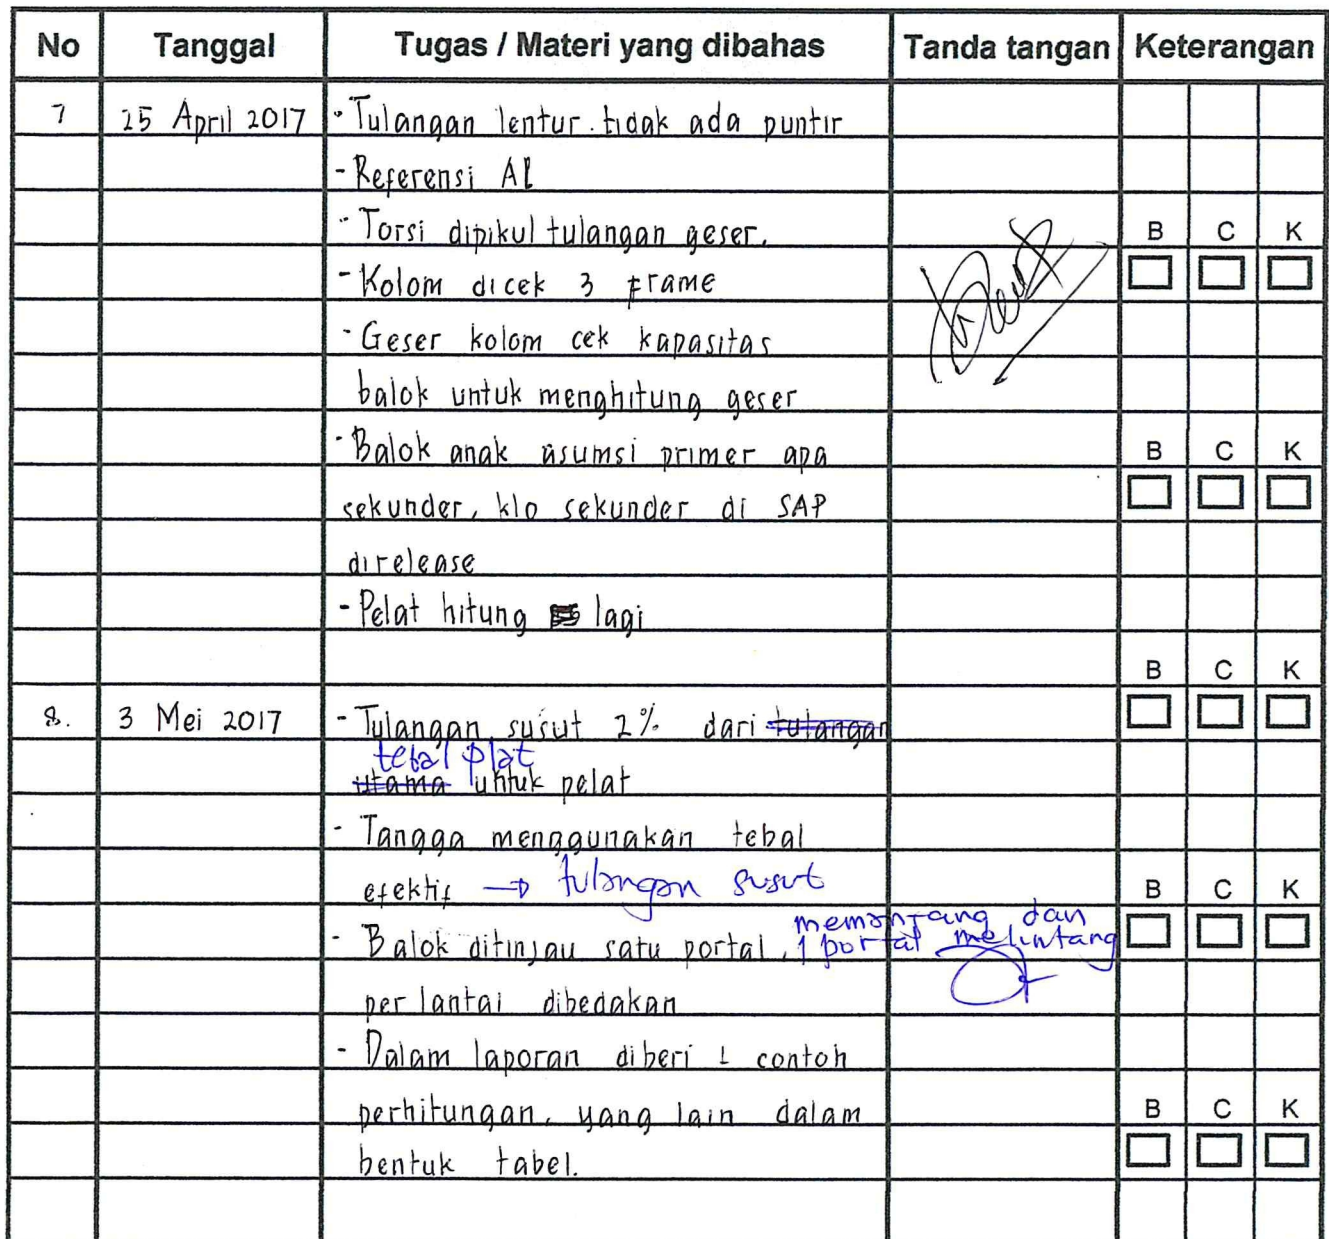 No Tanggal Tugas / Materi yang dibahas Tanda tangan Keterangan
7 25 April 2017 - Tulangan lentur. tidak ada puntir
- Referensi Al
- Torsi dipikul tulangan geser.
B C K
- Kolom dicek 3 Frame
- Geser kolom cek kapasitas
balok untuk menghitung geser
- Balok anak asumsi primer apa
B C K
sekunder, klo sekunder di SAP
direlease
- Pelat hitung lagi
B C K
8. 3 Mei 2017 - Tulangan susut 2% dari tulangan
tebal plat
utama untuk pelat
- Tangga menggunakan tebal
efektif → tulangan susut
B C K
memanjang dan
- Balok ditinjau satu portal, 1 portal melintang
per lantai dibedakan
- Dalam laporan diberi 1 contoh
perhitungan, yang lain dalam
B C K
bentuk tabel.